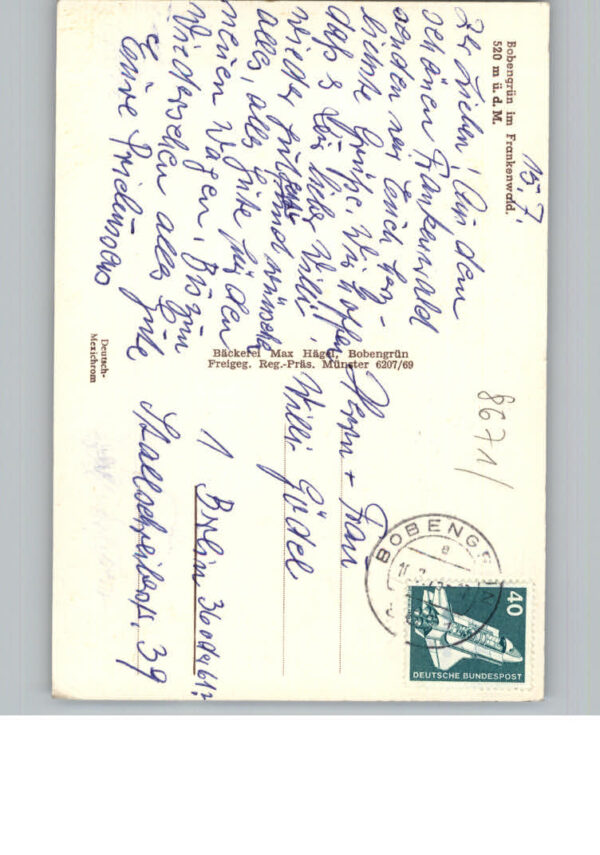 Bobengrün im Frankenwald.
520 m ü. d. M.
15.7.
Ihr Lieben! Aus dem
schönen Frankenwald
senden wir Euch herz-
lichste Grüße. Wir hoffen,
daß Du, lieber Willi,
wieder und wünschen
alles, alles Gute für den
neuen Wagen. Bis zum
Wiedersehen alles Gute
Eure
Bäckerei Max Hägel, Bobengrün
Freigeg. Reg.-Präs. Münster 6207/69
Deutsch-
Mexichrom
8671/
Herrn + Frau
Willi Gödel
1 Berlin 36 oder 61?
Stallschreiberstr. 39
BOBENG
40
DEUTSCHE BUNDESPOST